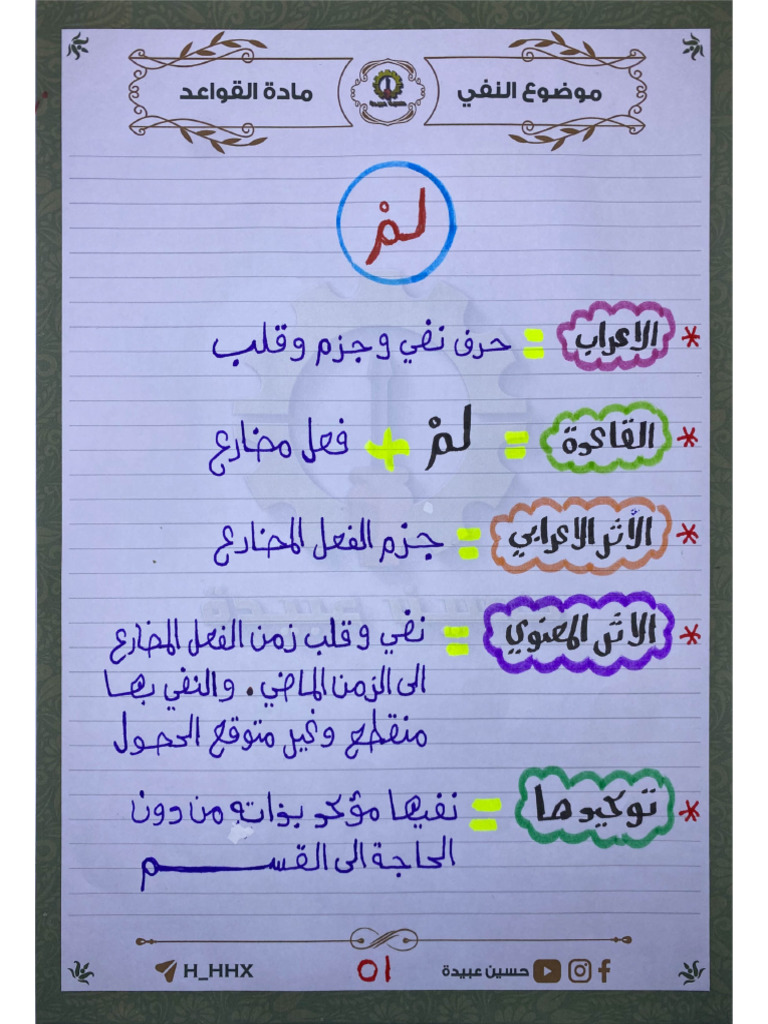 موضوع النفي
مادة القواعد
لمْ
* الاعراب = حرف نفي وجزم وقلب
* القاعدة = لمْ + فعل مضارع
* الأثر الاعرابي = جزم الفعل المضارع
* الاثر المعنوي = نفي وقلب زمن الفعل المضارع
الى الزمن الماضي. والنفي بها
منقطع وغير متوقع الحصول
* توكيدها = نفيها مؤكد بذاته من دون
الحاجة الى القسم
حسين عبيدة
01
H_HHX